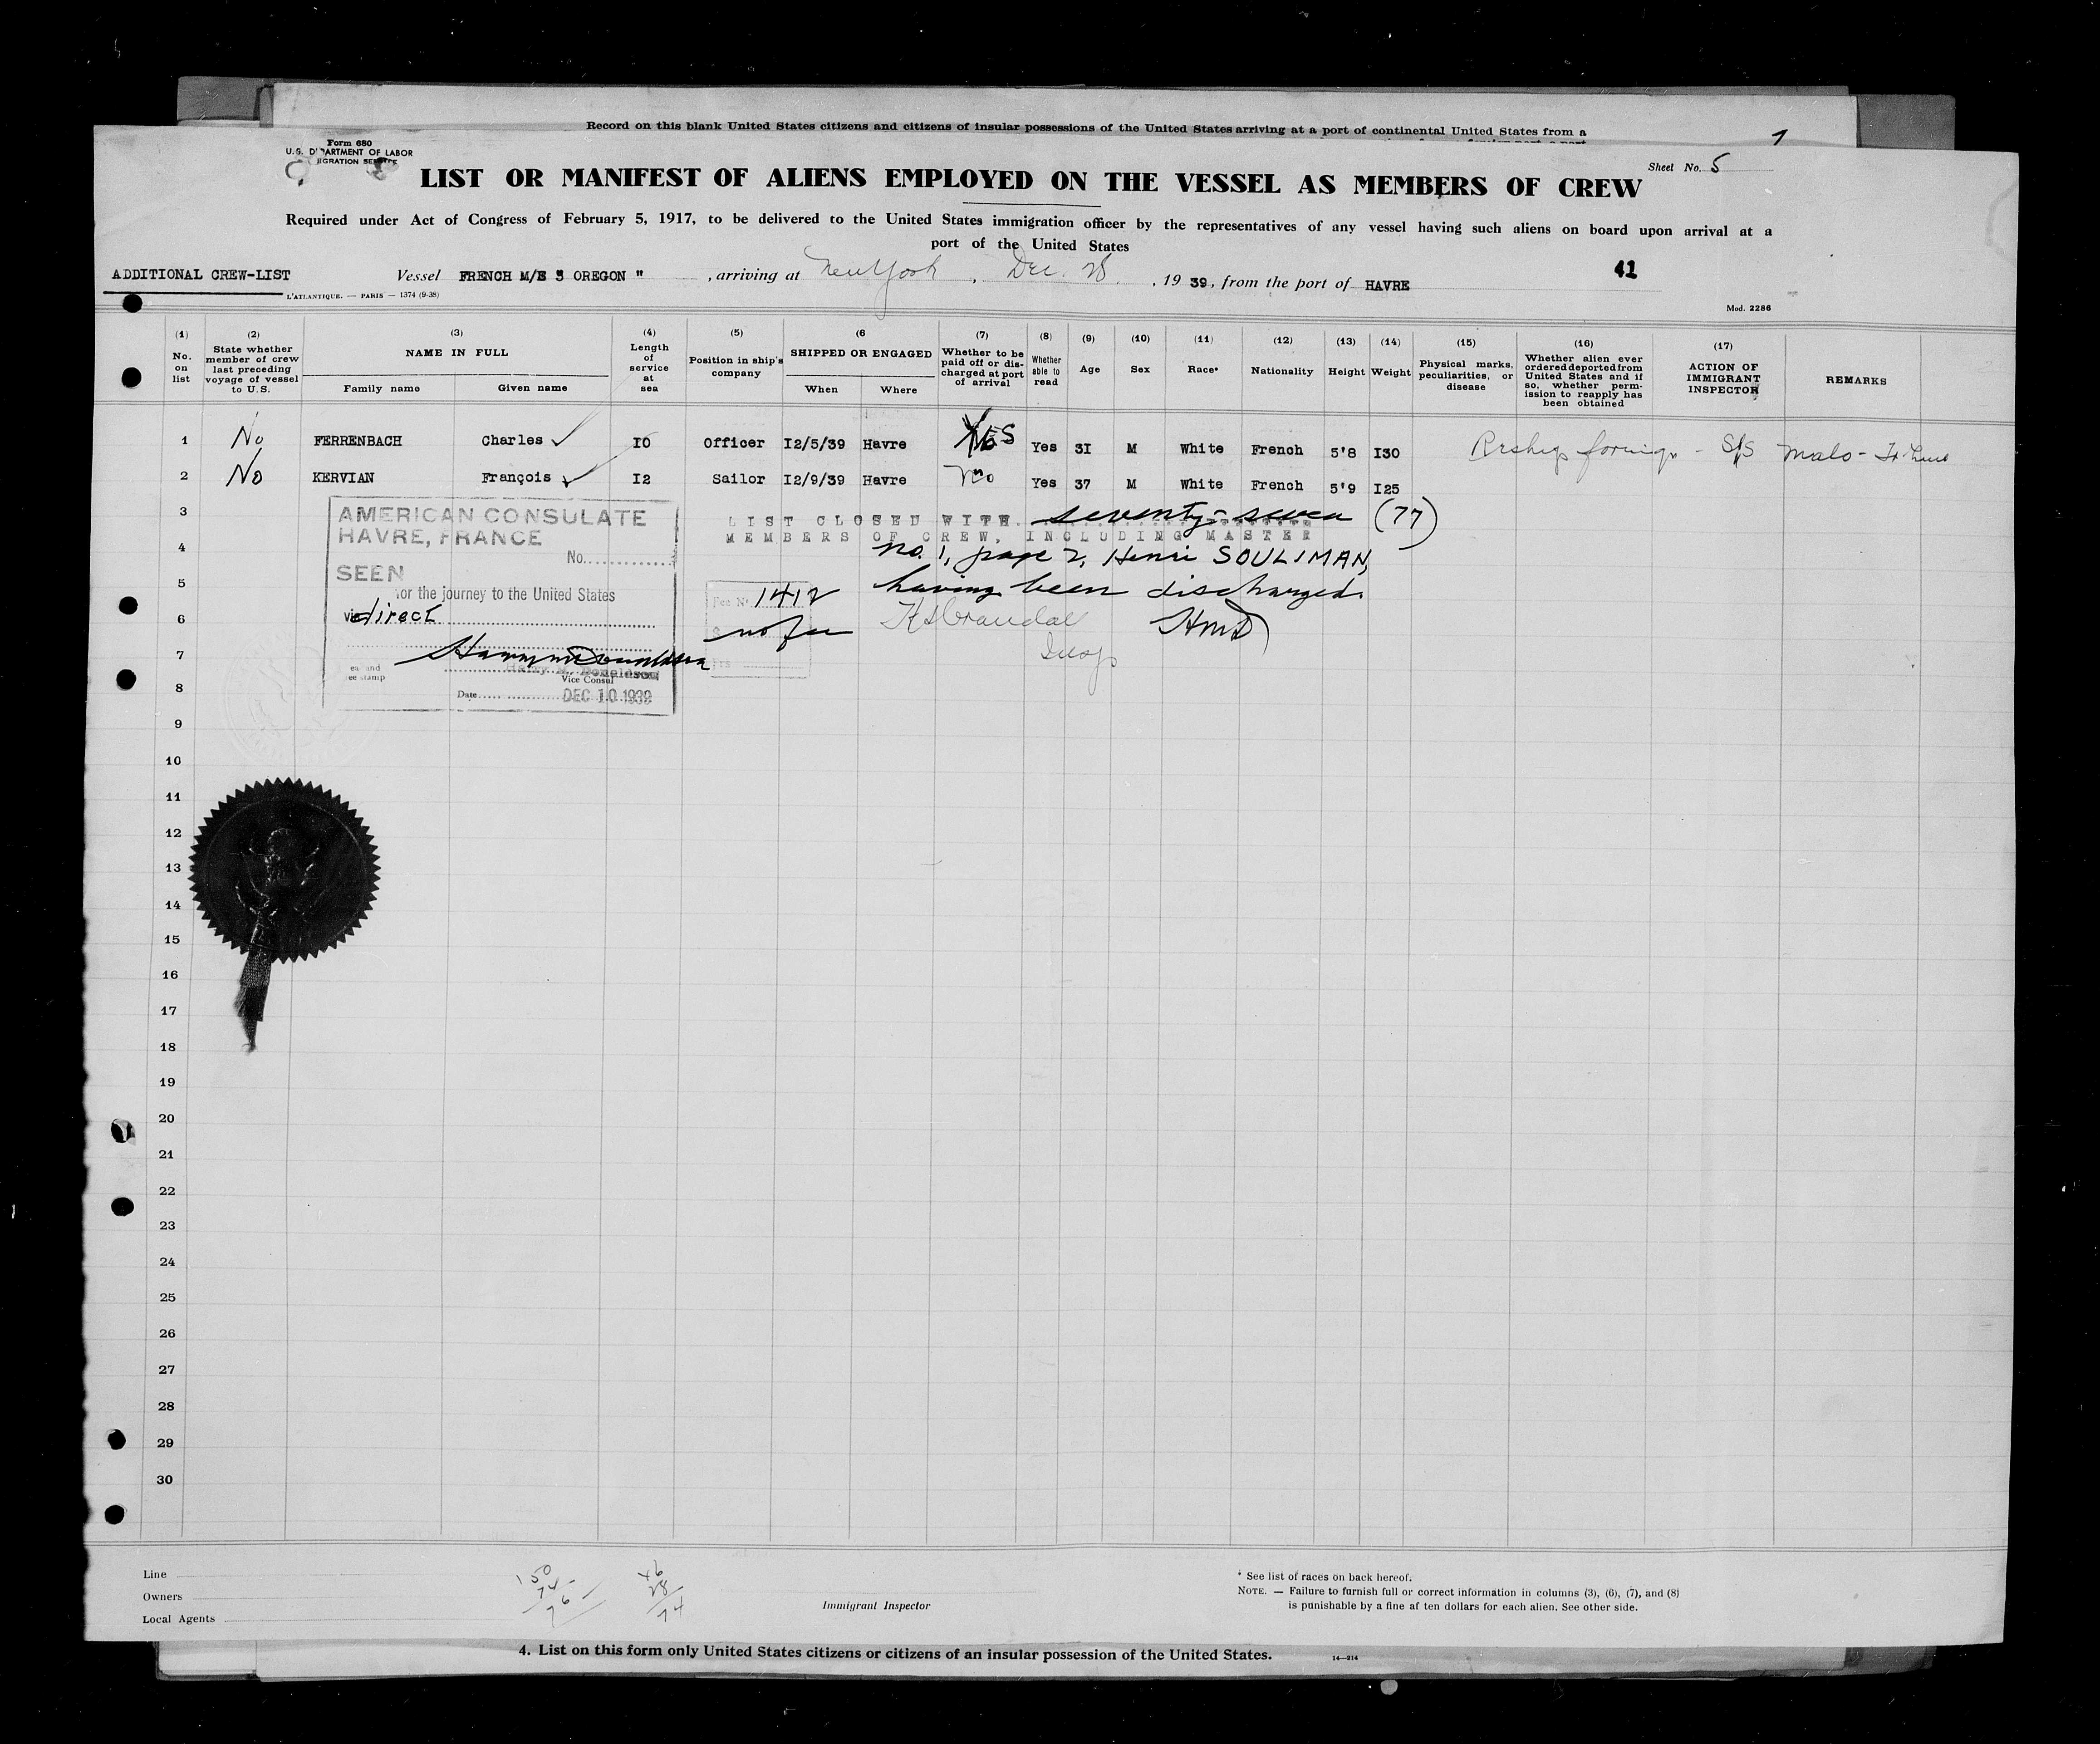 Record on this blank United States citizens and citizens of insular possessions of the United States arriving at a port of continental United States from a
Form 680
U.S. DEPARTMENT OF LABOR
IGRATION SERVICE
Sheet No. 5
LIST OR MANIFEST OF ALIENS EMPLOYED ON THE VESSEL AS MEMBERS OF CREW
Required under Act of Congress of February 5, 1917, to be delivered to the United States immigration officer by the representatives of any vessel having such aliens on board upon arrival at a
port of the United States
ADDITIONAL CREW-LIST Vessel FRENCH M/S S OREGON " , arriving at New York , Dec. 28 , 19 39, from the port of HAVRE 41
L'ATLANTIQUE. — PARIS — 1374 (9-38)
Mod. 2286
(1) No. on list
(2) State whether member of crew last preceding voyage of vessel to U.S.
(3) NAME IN FULL Family name Given name
(4) Length of service at sea
(5) Position in ship's company
(6 SHIPPED OR ENGAGED When Where
(7) Whether to be paid off or discharged at port of arrival
(8) Whether able to read
(9) Age
(10) Sex
(11) Race*
(12) Nationality
(13) Height
(14) Weight
(15) Physical marks, peculiarities, or disease
(16) Whether alien ever ordered deported from United States and if so, whether permission to reapply has been obtained
(17) ACTION OF IMMIGRANT INSPECTOR
REMARKS
1 No FERRENBACH Charles ✓ I0 Officer I2/5/39 Havre YES Yes 3I M White French 5'8 I30 S/S Malo -
2 No KERVIAN François ✓ I2 Sailor I2/9/39 Havre no Yes 37 M White French 5'9 I25
3
AMERICAN CONSULATE
HAVRE, FRANCE
No.
SEEN
for the journey to the United States
via direct
Harry M. Donaldson
Vice Consul
Date DEC 10 1939
LIST CLOSED WITH seventy-seven (77)
MEMBERS OF CREW, INCLUDING MASTER
no. 1, page 2, Henri SOULIMAN,
having been discharged.
Fee No. 1412
no fee
HMD
Insp
4
5
6
7
8
9
10
11
12
13
14
15
16
17
18
19
20
21
22
23
24
25
26
27
28
29
30
Line
Owners
Local Agents
150
74
76
46
28
74
Immigrant Inspector
* See list of races on back hereof.
NOTE. — Failure to furnish full or correct information in columns (3), (6), (7), and (8)
is punishable by a fine af ten dollars for each alien. See other side.
4. List on this form only United States citizens or citizens of an insular possession of the United States.
14—214